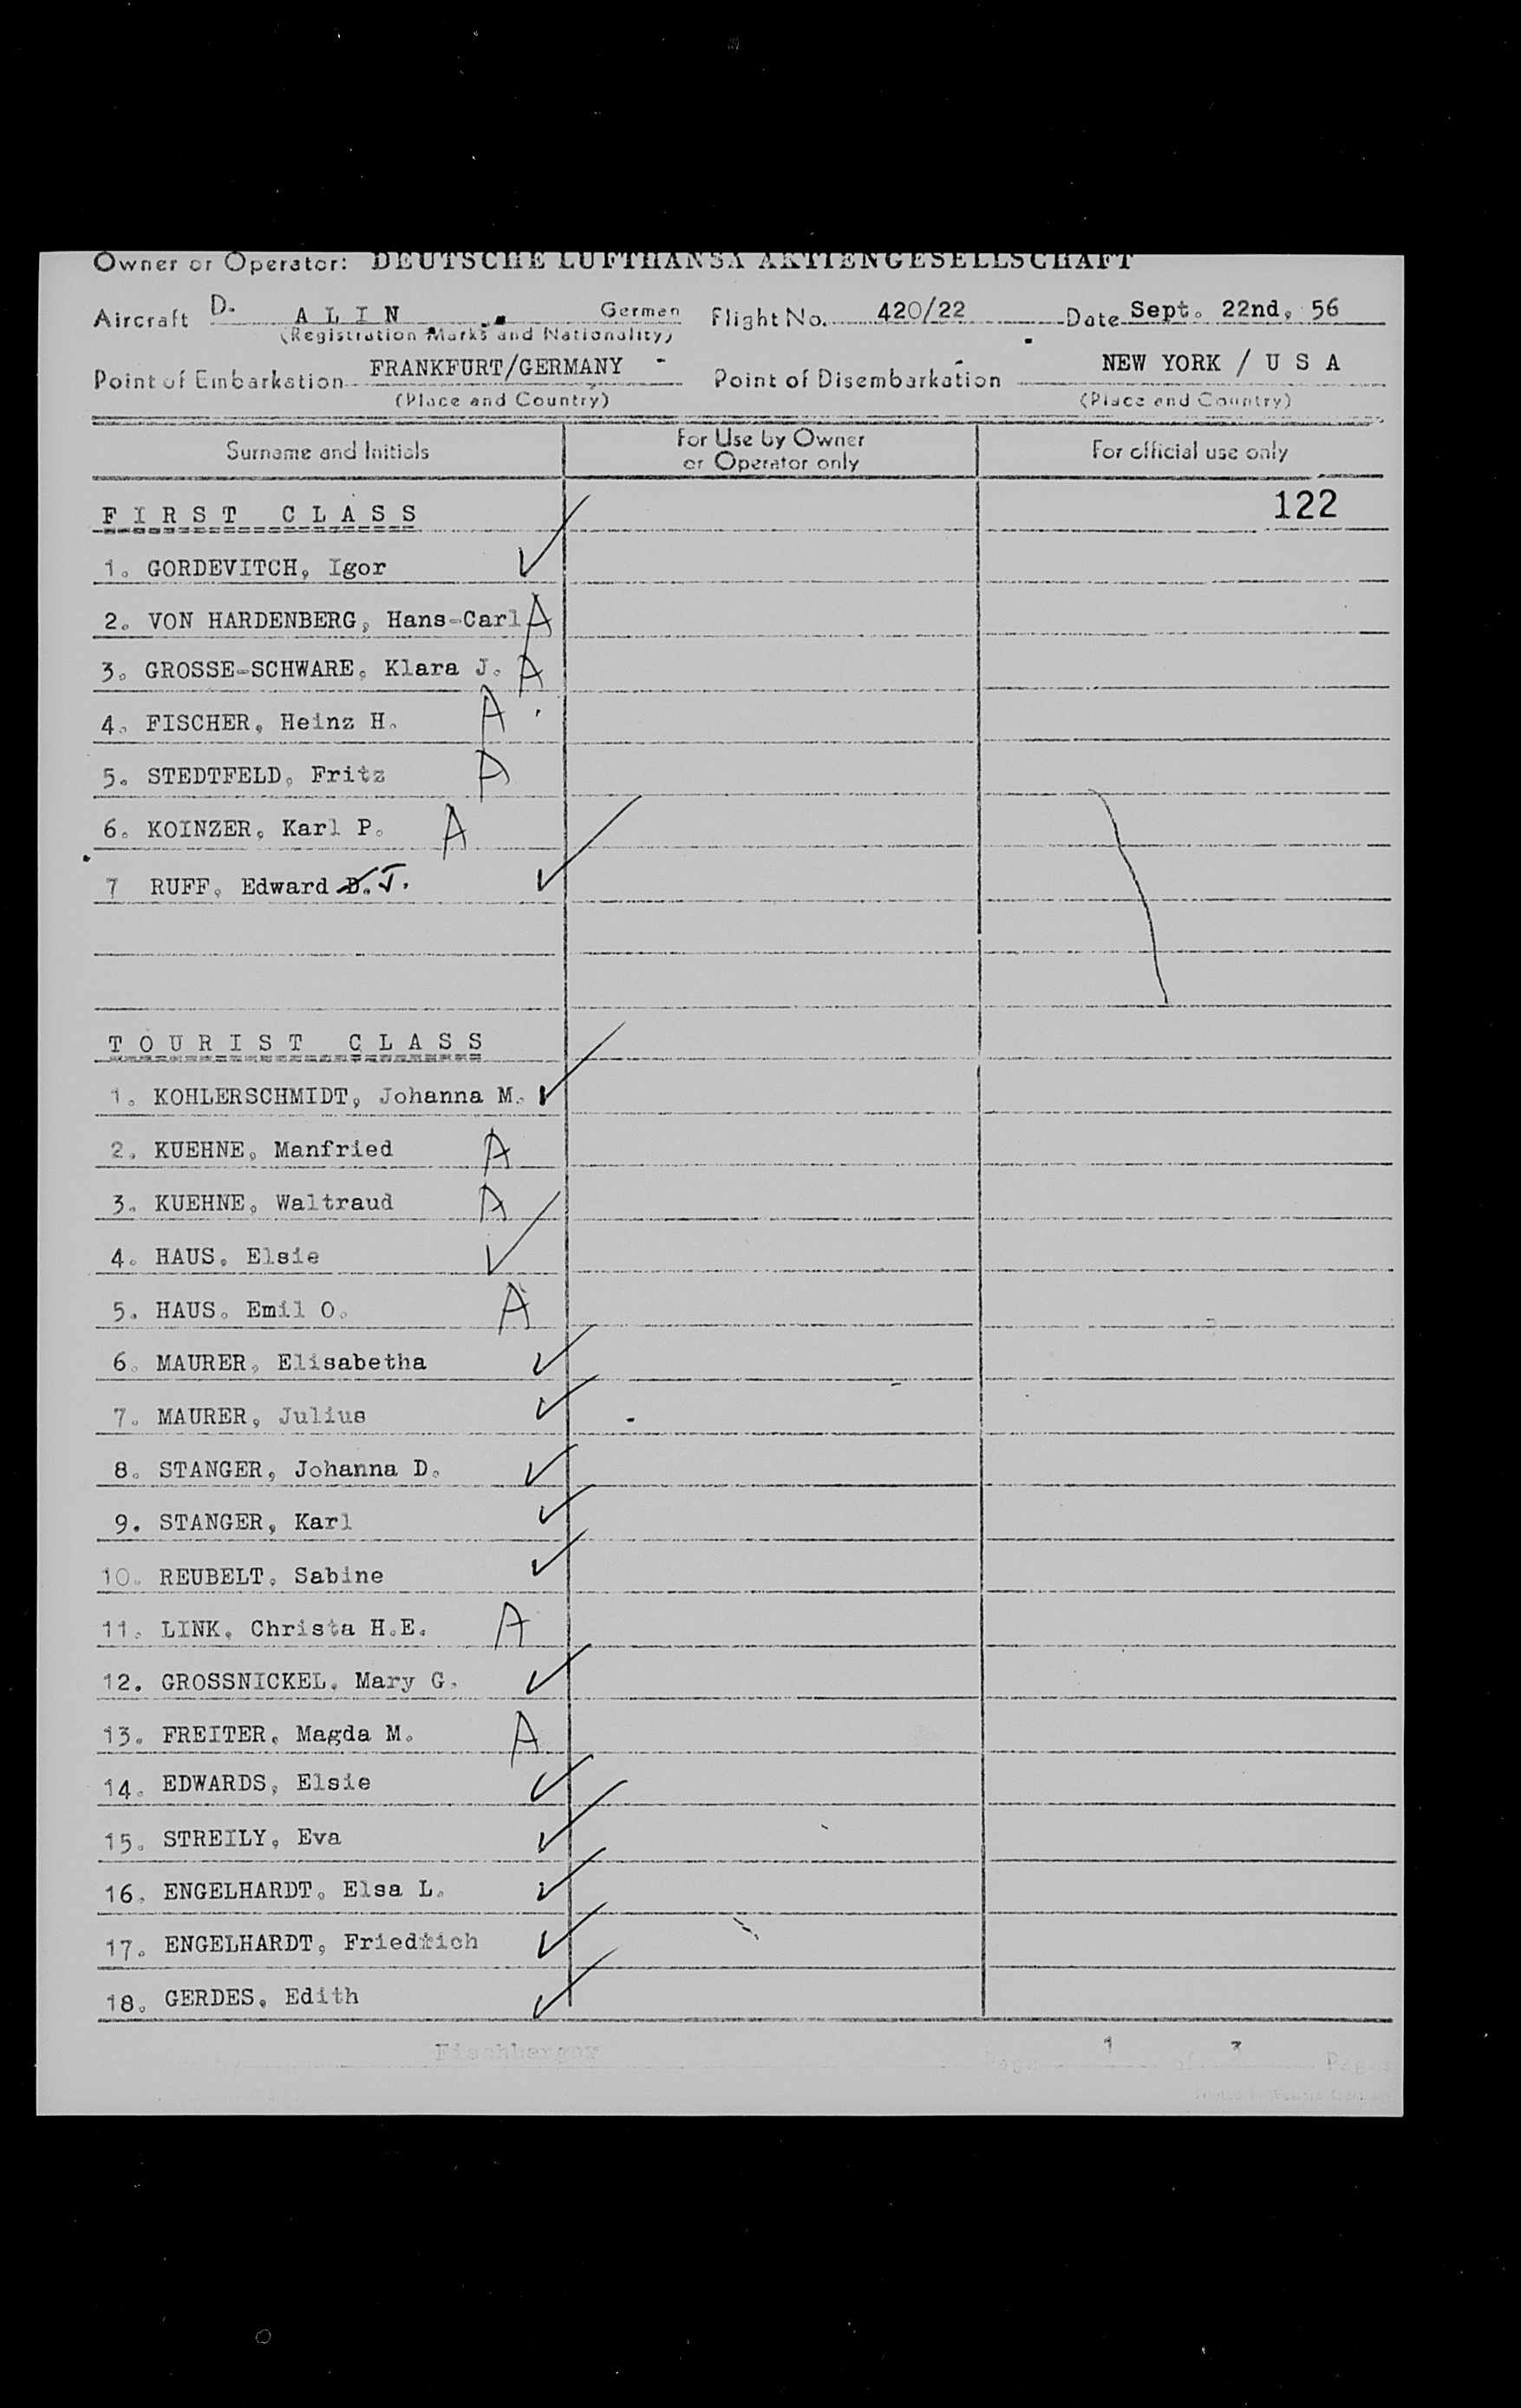 Owner or Operator: DEUTSCHE LUFTHANSA AKTIENGESELLSCHAFT
Aircraft D. A L I N German Flight No. 420/22 Date Sept. 22nd, 56
(Registration Marks and Nationality)
Point of Embarkation FRANKFURT/GERMANY Point of Disembarkation NEW YORK / U S A
(Place and Country) (Place and Country)
Surname and Initials For Use by Owner or Operator only For official use only
F I R S T C L A S S 122
1. GORDEVITCH, Igor ✓
2. VON HARDENBERG, Hans-Carl A
3. GROSSE-SCHWARE, Klara J. A
4. FISCHER, Heinz H. A
5. STEDTFELD, Fritz A
6. KOINZER, Karl P. A
7 RUFF, Edward D. J. ✓
T O U R I S T C L A S S
1. KOHLERSCHMIDT, Johanna M. ✓
2. KUEHNE, Manfried A
3. KUEHNE, Waltraud A
4. HAUS, Elsie ✓
5. HAUS, Emil O. A
6. MAURER, Elisabetha ✓
7. MAURER, Julius ✓
8. STANGER, Johanna D. ✓
9. STANGER, Karl ✓
10. REUBELT, Sabine ✓
11. LINK, Christa H.E. A
12. GROSSNICKEL, Mary G. ✓
13. FREITER, Magda M. A
14. EDWARDS, Elsie ✓
15. STREILY, Eva ✓
16. ENGELHARDT, Elsa L. ✓
17. ENGELHARDT, Friedrich ✓
18. GERDES, Edith ✓
Fischberger Page 1 of 3 Pages